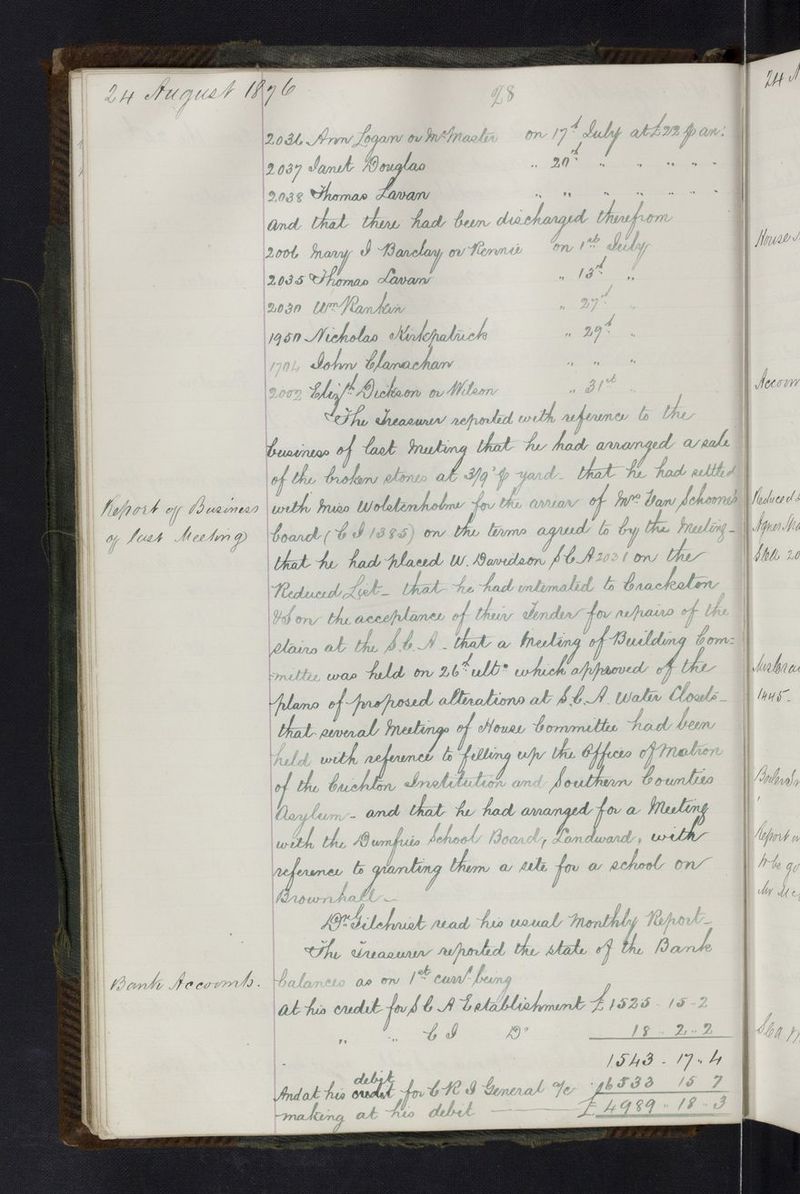 24 August 1876
28
2036 Ann Logan or McMaster on 17th July at £22 p an.
2037 Janet Douglas " 20th " " " " "
2038 Thomas Lavan " " " " " " "
and that there had been discharged therefrom
2006 Mary I Barclay or Rennie on 1st July
2035 Thomas Lavan " 13th "
2030 Wm Rankin " 27th "
1950 Nicholas Kirkpatrick " 29th "
1704 John Clanachan " " "
2002 Elizth Dickson or Wilson " 31st "
The Treasurer reported with reference to the
business of last Meeting that he had arranged a sale
of the broken stones at 3/9d p yard - that he had settled
Report of Business
of last Meeting
with Miss Wolstenholme for the arrear of Mrs Van Schoone's
board (C I 1385) on the terms agreed to by the Meeting -
that he had placed W. Davidson S C A 2031 on the
Reduced List - that he had intimated to Crackston
& Son the acceptance of their Tender for repairs of the
stairs at the S. C. A - that a Meeting of Building Com=
mittee was held on 26th ulto which approved of the
plans of proposed alterations at S. C. A Water Closets -
that several Meetings of House Committee had been
held with reference to filling up the Offices of Matron
of the Crichton Institution and Southern Counties
Asylum - and that he had arranged for a Meeting
with the Dumfries School Board, Landward, with
reference to granting them a site for a school on
Brownhall -
Dr Gilchrist read his usual Monthly Report -
The Treasurer reported the state of the Bank
Bank Accounts.
balances as on 1st currt being
At his credit for S C A Establishment £1525 - 15 - 2
" " C I Do 18 - 2 - 2
1543 - 17 - 4
And at his credit debit for C R I General a/c 6533 15 7
making at his debit £ 4989 - 18 - 3